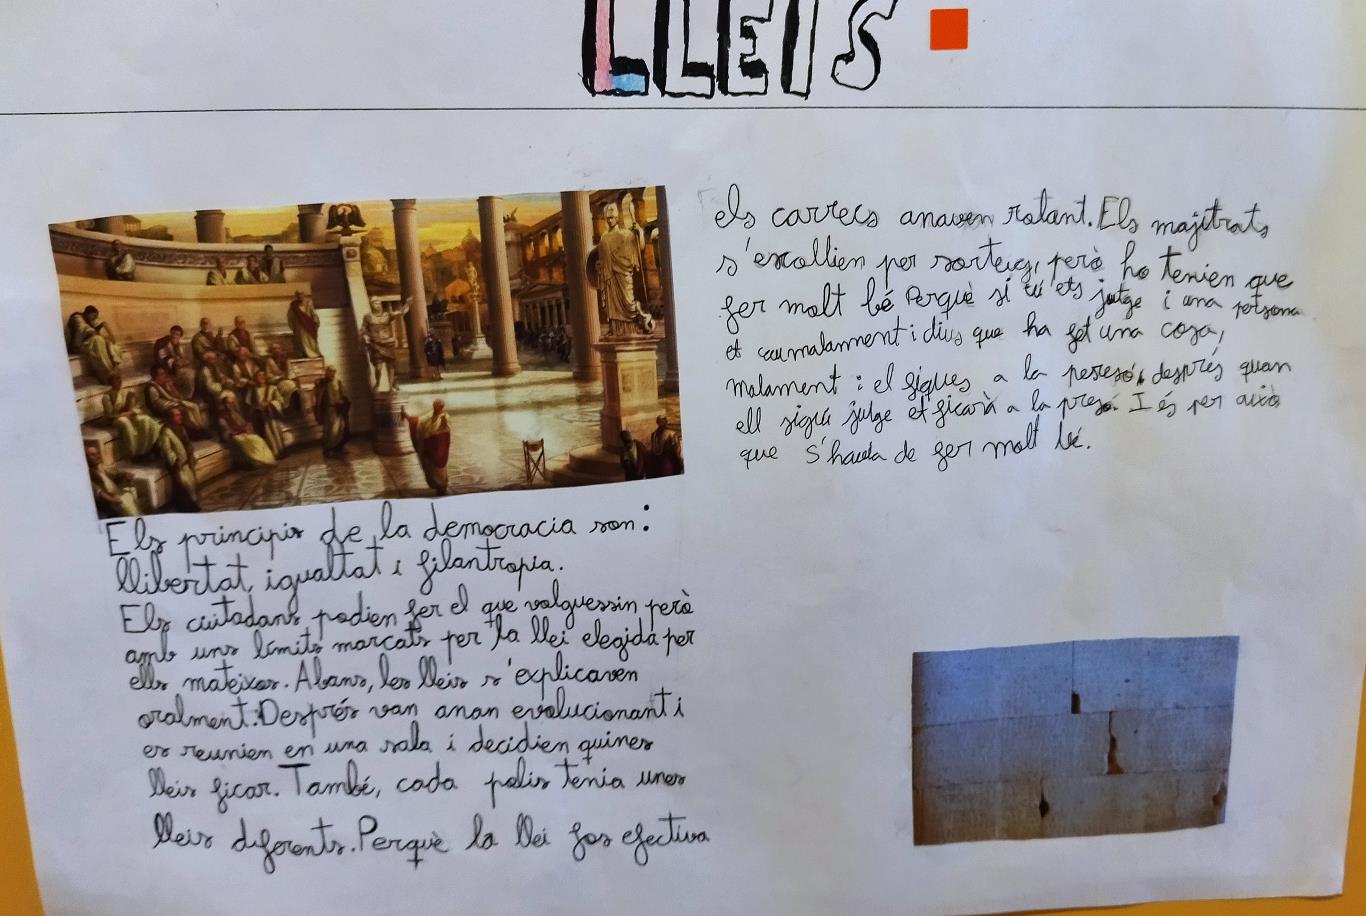 LLEIS
Els principis de la democracia son:
llibertat, igualtat i filantropia.
Els ciutadans podien fer el que volguessin però
amb uns límits marcats per la llei elegida per
ells mateixos. Abans, les lleis s'explicaven
oralment. Després van anan evolucionant i
es reunien en una sala i decidien quines
lleis ficar. També, cada polis tenia unes
lleis diferents. Perquè la llei fos efectiva
els carrecs anaven rotant. Els majitrats
s'escollien per sorteig, però ho tenien que
fer molt bé Perquè si tú ets jutge i una persona
et cau malament i dius que ha fet una cosa,
malament i el fiques a la presó, després quan
ell sigui jutge et ficarà a la presó. I és per això
que s'havia de fer molt bé.